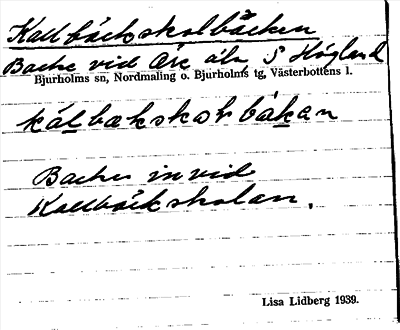 Kallbäckskolbäcken
Backe vid Öre älv S Högland
Bjurholms sn, Nordmaling o. Bjurholms tg, Västerbottens l.
kálbækskolbækan
Backe invid
Kallbäckskolan.
Lisa Lidberg 1939.